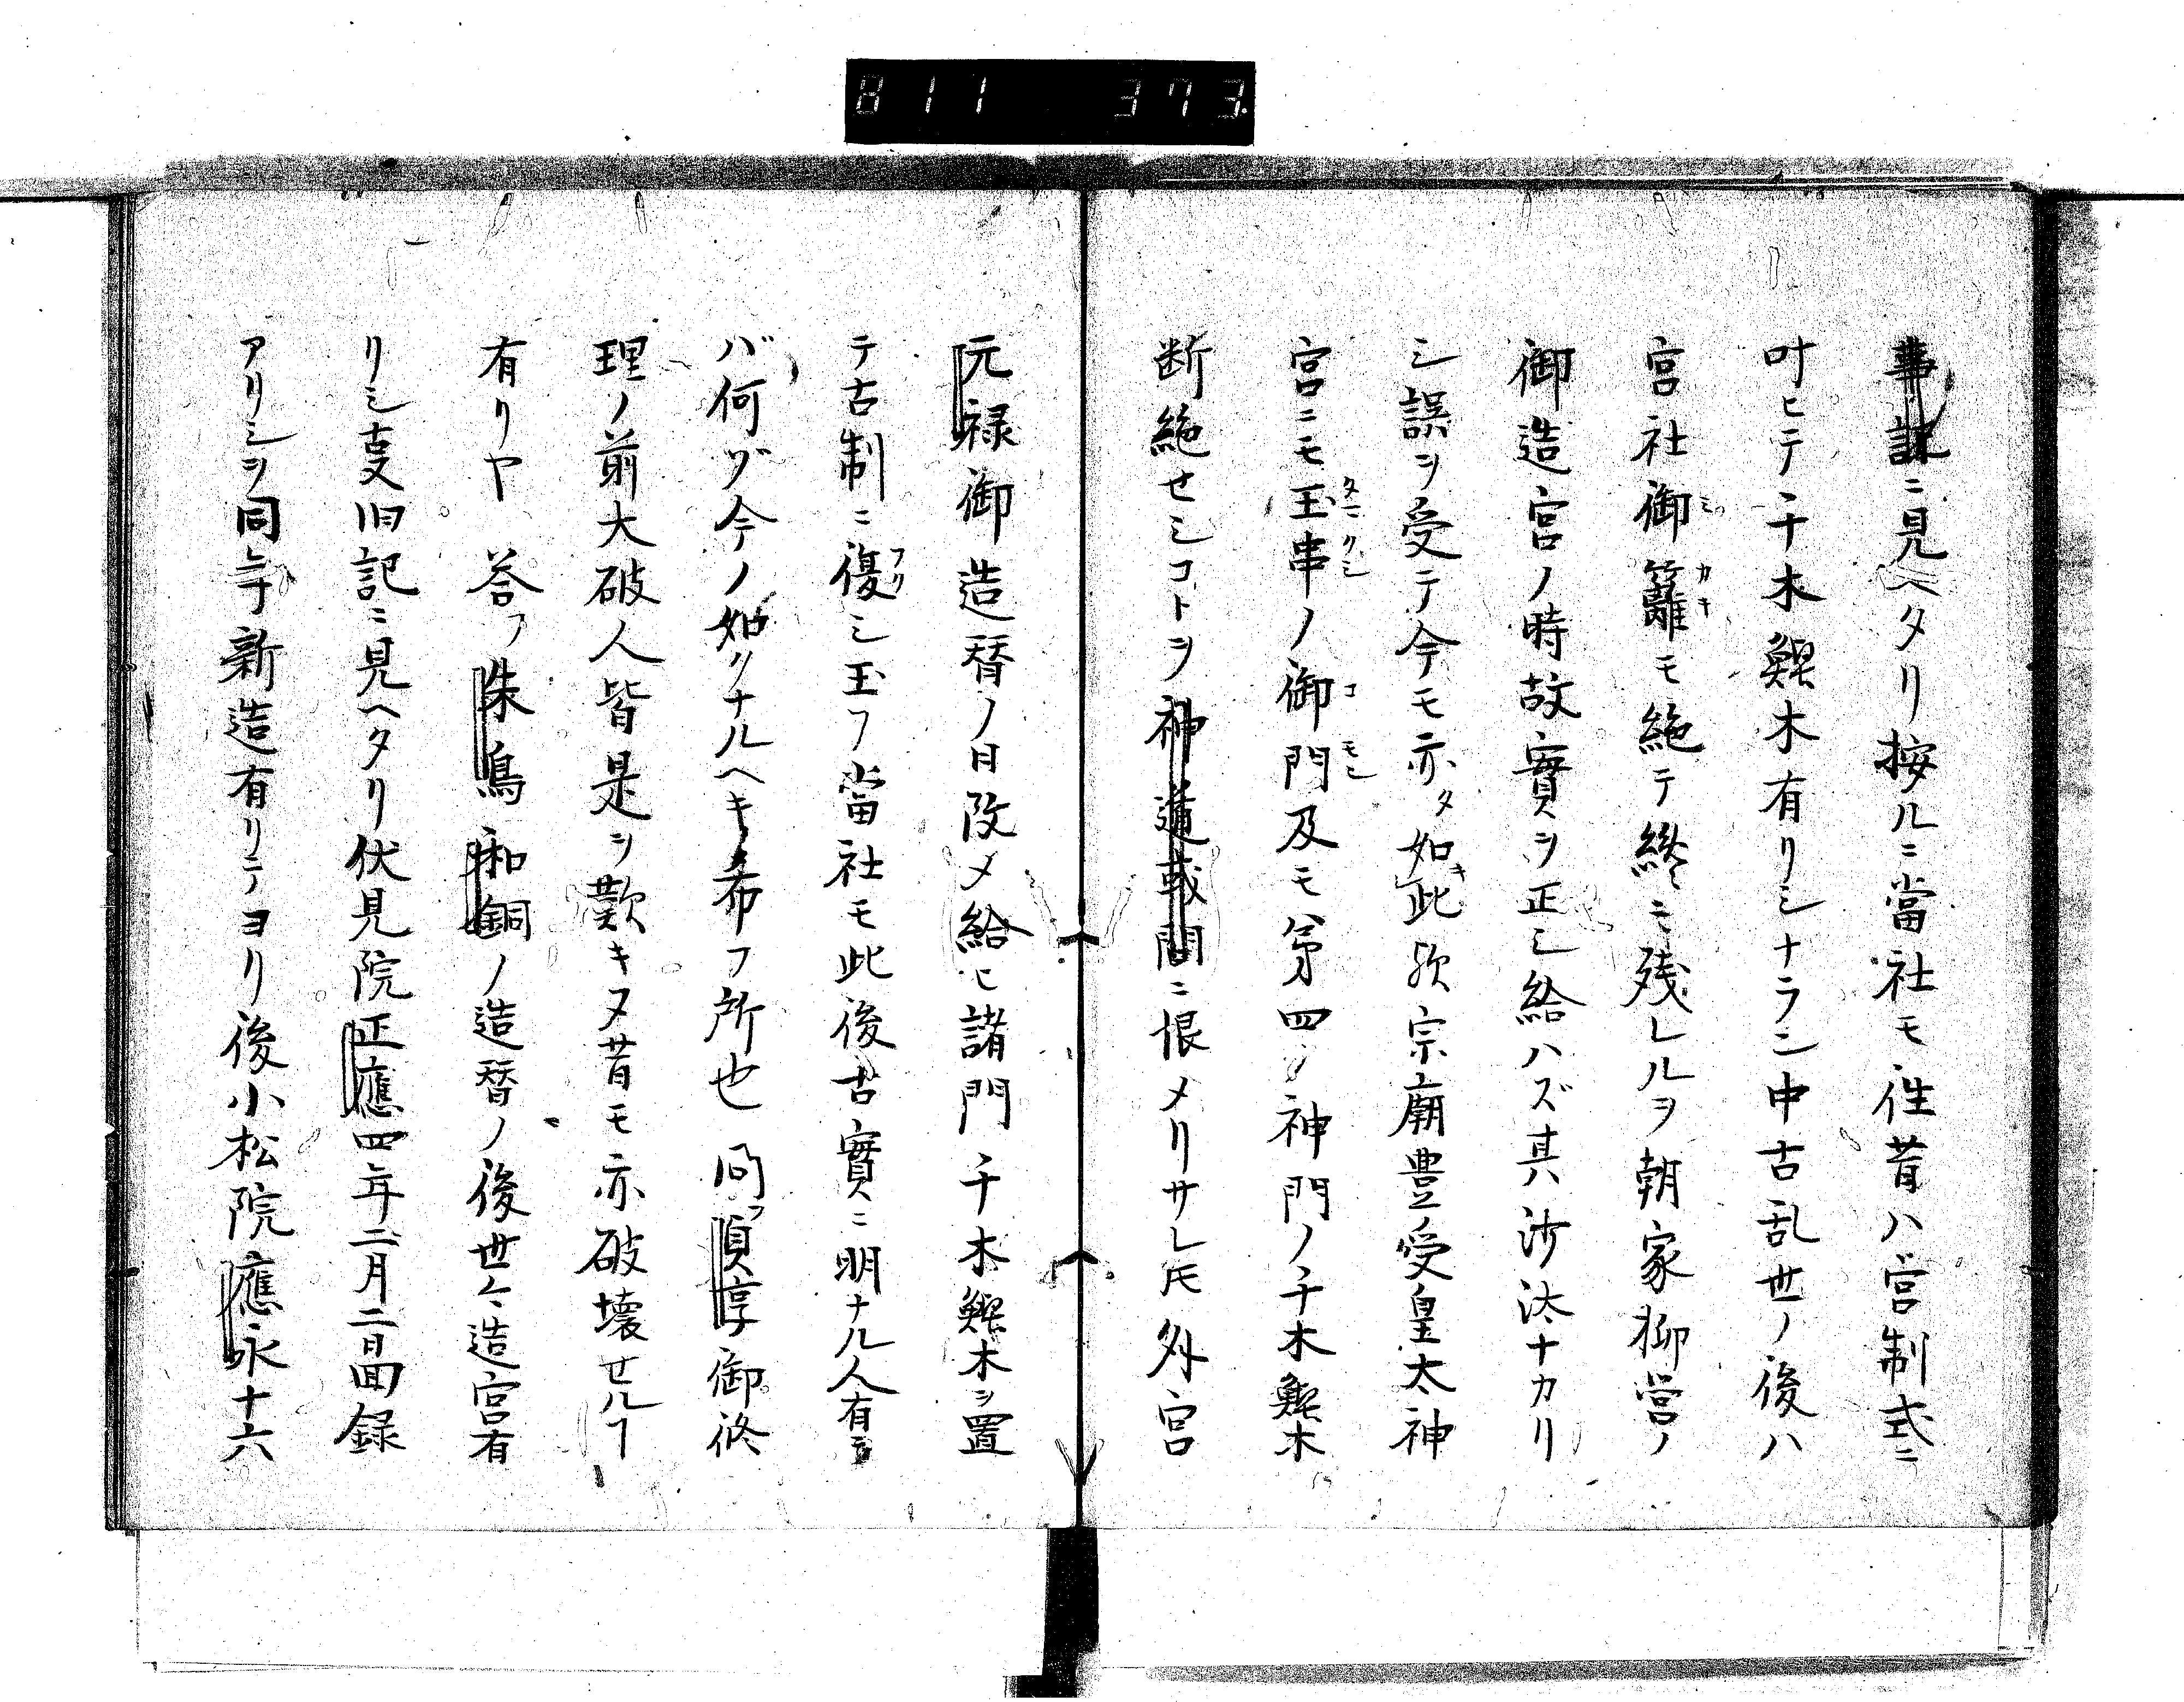 811 373
事記ニ見ヘタリ按ルニ當社モ徃昔ハ宮制式ニ
叶ヒテ千木鰹木有リシナラン中古乱世ノ後ハ
宮社御籬モ絶テ終ニ残レルヲ朝家柳営ノ
御造宮ノ時故實ヲ正シ給ハズ其沙汰ナカリ
シ誤ヲ受テ今モ亦タ如此歟宗廟豊受皇太神
宮ニモ玉串ノ御門及モ第四ノ神門ノ千木鰹木
断絶セシコトヲ神道或問ニ恨メリサレ𪜈外宮
元禄御造替ノ日改メ給ヒ諸門千木鰹木ヲ置
テ古制ニ復シ玉フ當社モ此後古實ニ明ナル人有ラ
バ何ゾ今ノ如クナルヘキ希フ所也 問フ貞享御修
理ノ前大破人皆是ヲ歎キヌ昔モ亦破壊セルヿ
有リヤ 答フ朱鳥和銅ノ造替ノ後世々造宮有
リシ支旧記ニ見ヘタリ伏見院正應四年二月二日回録
アリシヲ同年新造有リテヨリ後小松院應永十六